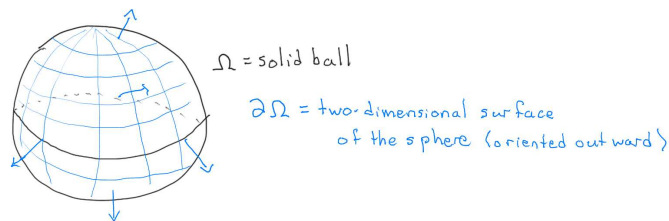 Ω = solid ball
∂Ω = two-dimensional surface
of the sphere (oriented outward)